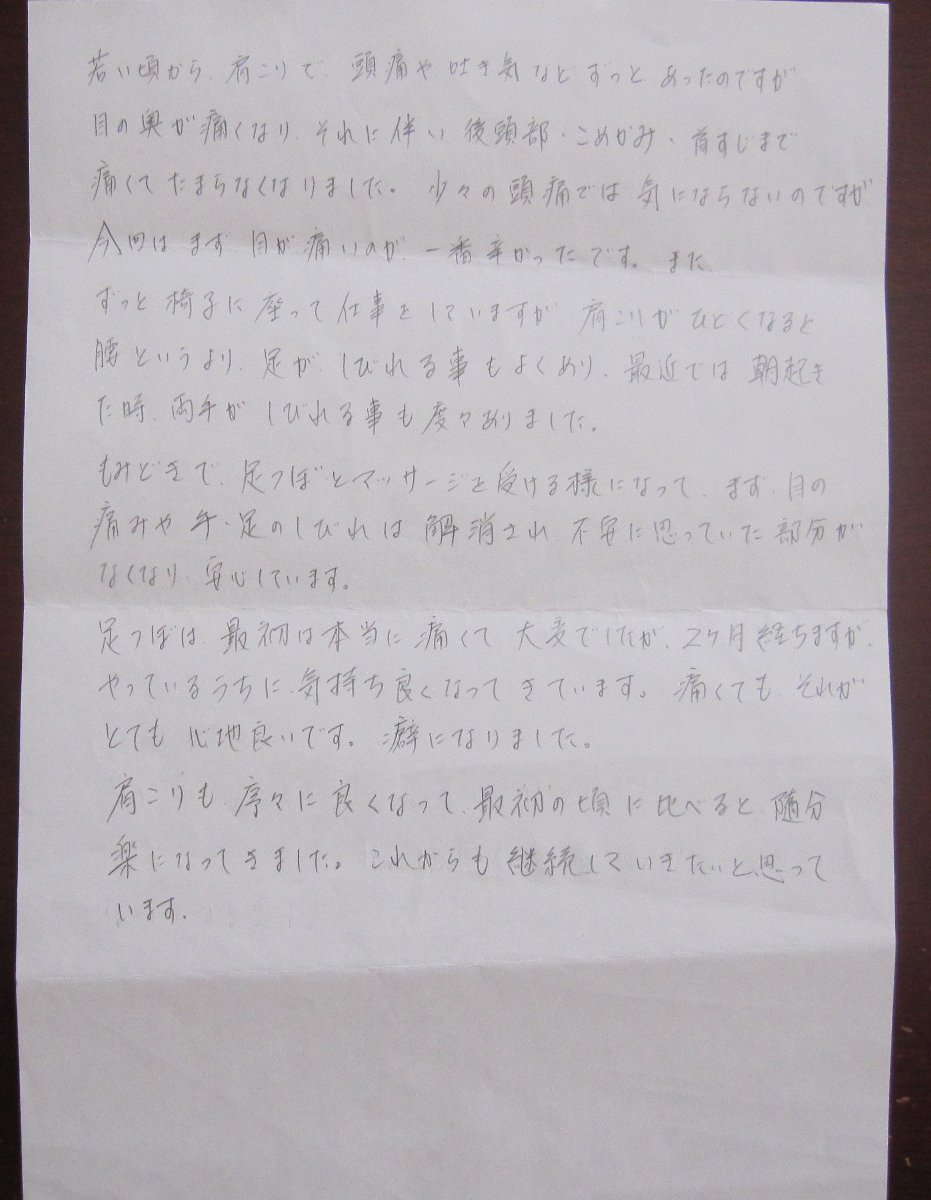 若い頃から、肩こりで、頭痛や吐き気などずっとあったのですが
目の奥が痛くなり、それに伴い後頭部・こめかみ・首すじまで
痛くてたまらなくなりました。少々の頭痛では気にならないのですが、
今回はまず目が痛いのが、一番辛かったです。また
ずっと椅子に座って仕事をしていますが肩こりがひどくなると
腰というより、足がしびれる事もよくあり、最近では朝起き
た時、両手がしびれる事も度々ありました。
もみどきで、足つぼとマッサージを受ける様になって、まず、目の
痛みや手・足のしびれは解消され、不安に思っていた部分が
なくなり、安心しています。
足つぼは、最初は本当に痛くて大変でしたが、2ヶ月経ちますが、
やっているうちに、気持ち良くなってきています。痛くても、それが
とても心地良いです。癖になりました。
肩こりも、序々に良くなって、最初の頃に比べると、随分
楽になってきました。これからも継続していきたいと思って
います。